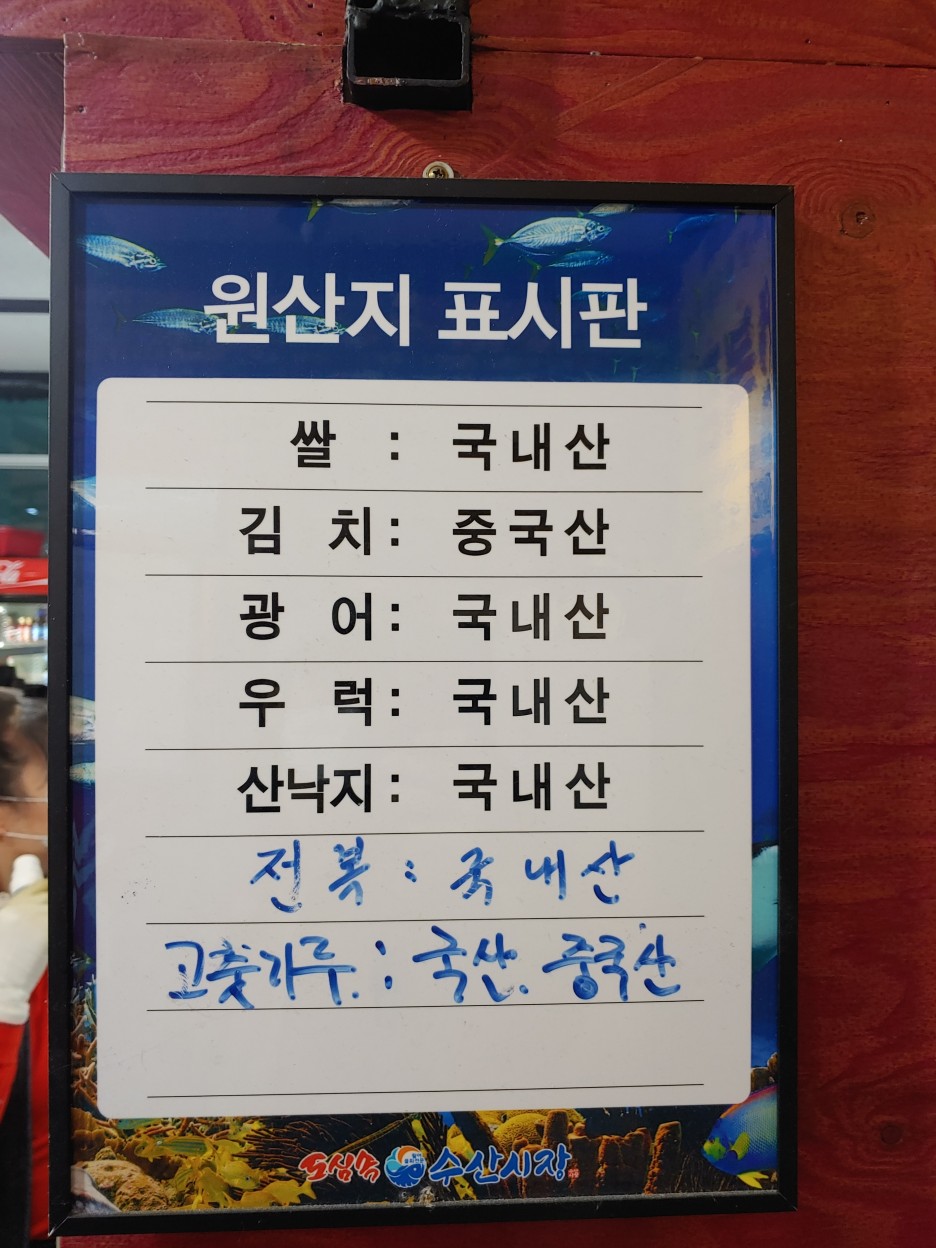 원산지 표시판
쌀 : 국내산
김 치 : 중국산
광 어 : 국내산
우 럭 : 국내산
산낙지 : 국내산
전 복 : 국내산
고춧가루. : 국산. 중국산
도심속 수산시장